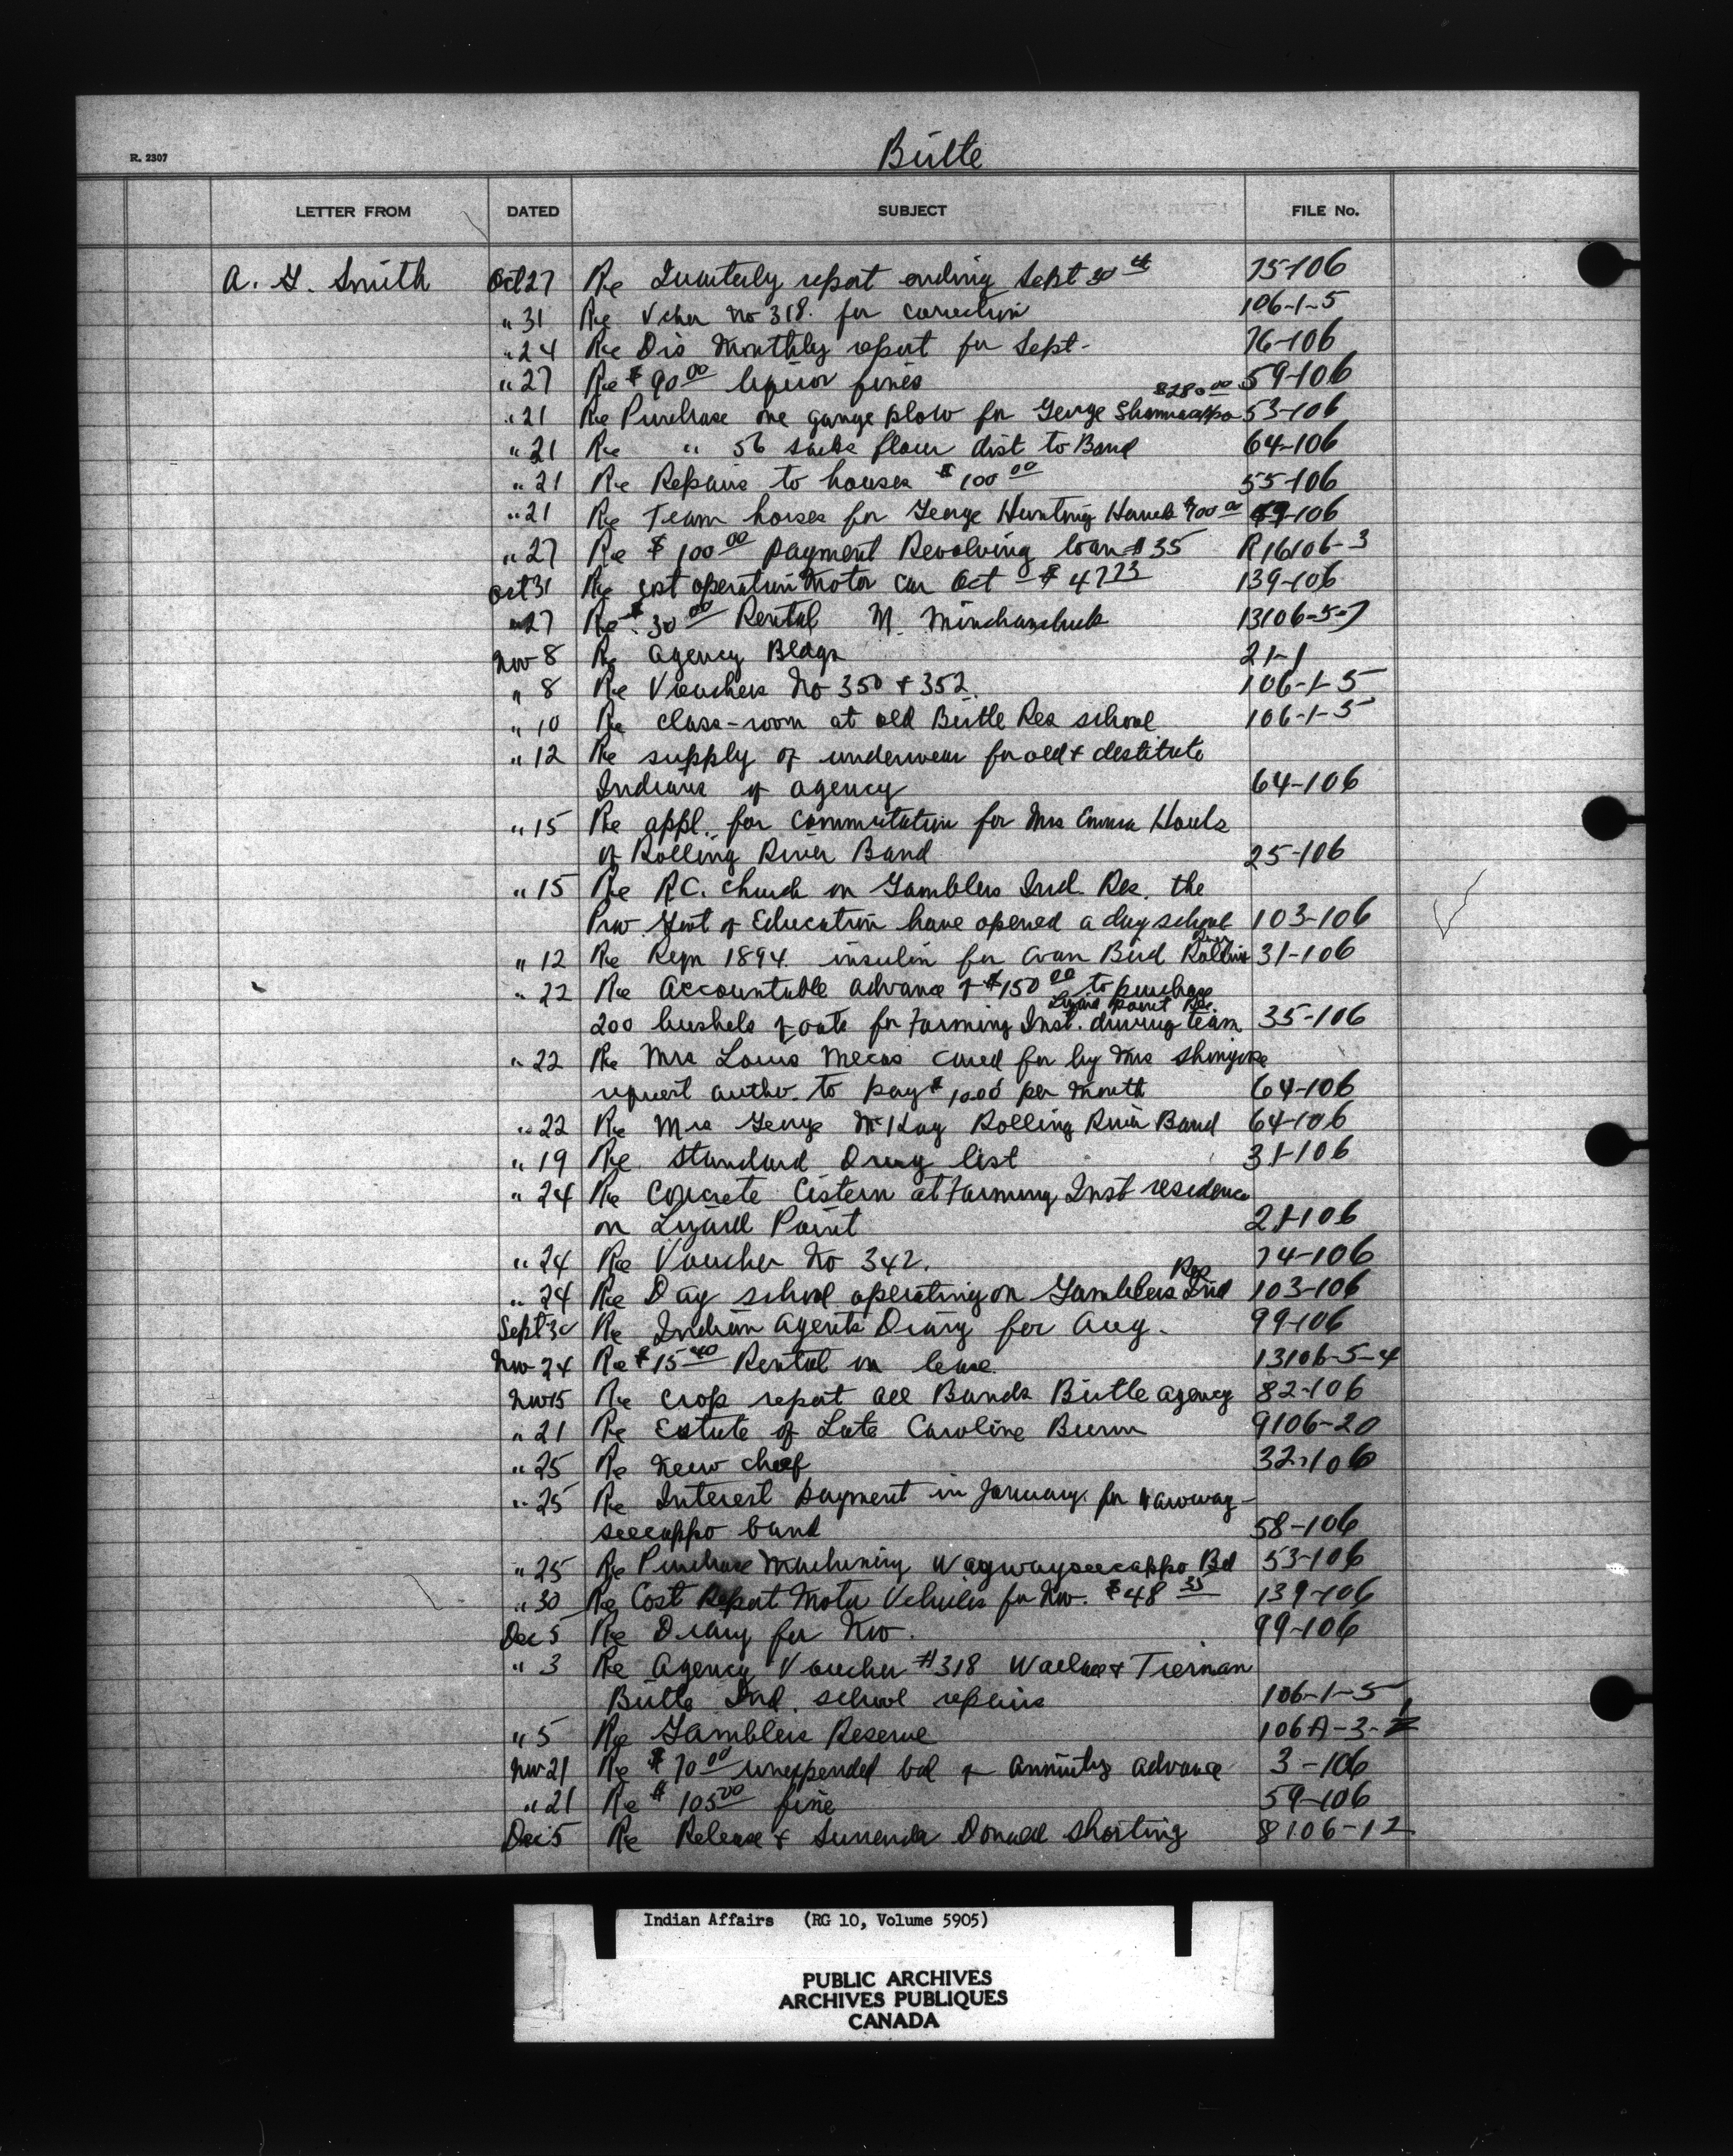 R. 2307
Birtle
LETTER FROM DATED SUBJECT FILE No.
A. G. Smith Oct 27 Re Quarterly report ending Sept 30th 75-106
" 31 Re Vcher No 318. for correction 106-1-5
" 24 Re Dis Monthly report for Sept- 76-106
" 27 Re $90.00 liquor fines 59-106
$280.00
" 21 Re Purchase one gange plow for George 53-106
" 21 Re " 56 sacks flour dist to Band 64-106
" 21 Re Repairs to houses $100.00 55-106
" 21 Re Team horses for George Hunting Hawk -106
" 27 Re $100.00 payment Revolving loan #35 R16106-3
Oct 31 Re cost operation Motor car Oct - $47.73 139-106
" 27 Re $30.00 Rental M. 13106-5-7
Nov 8 Re Agency Bldgs 21-1
" 8 Re Vouchers No 350 + 352. 106-1-5
" 10 Re class-room at old Birtle Res school 106-1-5
" 12 Re supply of underwear for old + destitute
Indians of agency 64-106
" 15 Re appl. for commutation for Mrs Emma Houle
of Rolling River Band 25-106
" 15 Re R.C. church on Gamblers Ind. Res. the
Prov. Govt of Education have opened a day school 103-106
River
" 12 Re Reqn 1894 insulin for Bird Rolling 31-106
" 22 Re Accountable advance of $150.00 to purchase
Lizard Point Res.
200 bushels of oats for Farming Inst. driving team 35-106
" 22 Re Mrs Louis Mecas cared for by Mrs
request autho. to pay $10.00 per month 64-106
" 22 Re Mrs George McKay Rolling River Band 64-106
" 19 Re Standard Drug list 31-106
" 24 Re Concrete Cistern at Farming Inst residence
on Lizard Point 21-106
" 24 Re Voucher No 342. 74-106
Res
" 24 Re Day school operating on Gamblers Ind 103-106
Sept 30 Re Indian Agents Diary for Aug. 99-106
Nov 24 Re $15.40 Rental on lease 13106-5-4
Nov 15 Re crop report all Bands Birtle agency 82-106
" 21 Re Estate of Late Caroline Burns 9106-20
" 25 Re New chief 32-106
" 25 Re Interest payment in January. for Wayway-
seecappo band 58-106
" 25 Re Purchase Machinery Waywayseecappo Bd 53-106
" 30 Re Cost Report Motor Vehicles for Nov. $48.35 139-106
Dec 5 Re Diary for Nov. 99-106
" 3 Re Agency Voucher #318 Wallace + Tiernan
Birtle Ind. school repairs 106-1-5
" 5 Re Gamblers Reserve 106A-3-1
Nov 21 Re $70.00 unexpended bal of annuity advance 3-106
" 21 Re $105.00 fine 59-106
Dec 5 Re Release + Surrender Donald Shorting 8106-12
Indian Affairs (RG 10, Volume 5905)
PUBLIC ARCHIVES
ARCHIVES PUBLIQUES
CANADA